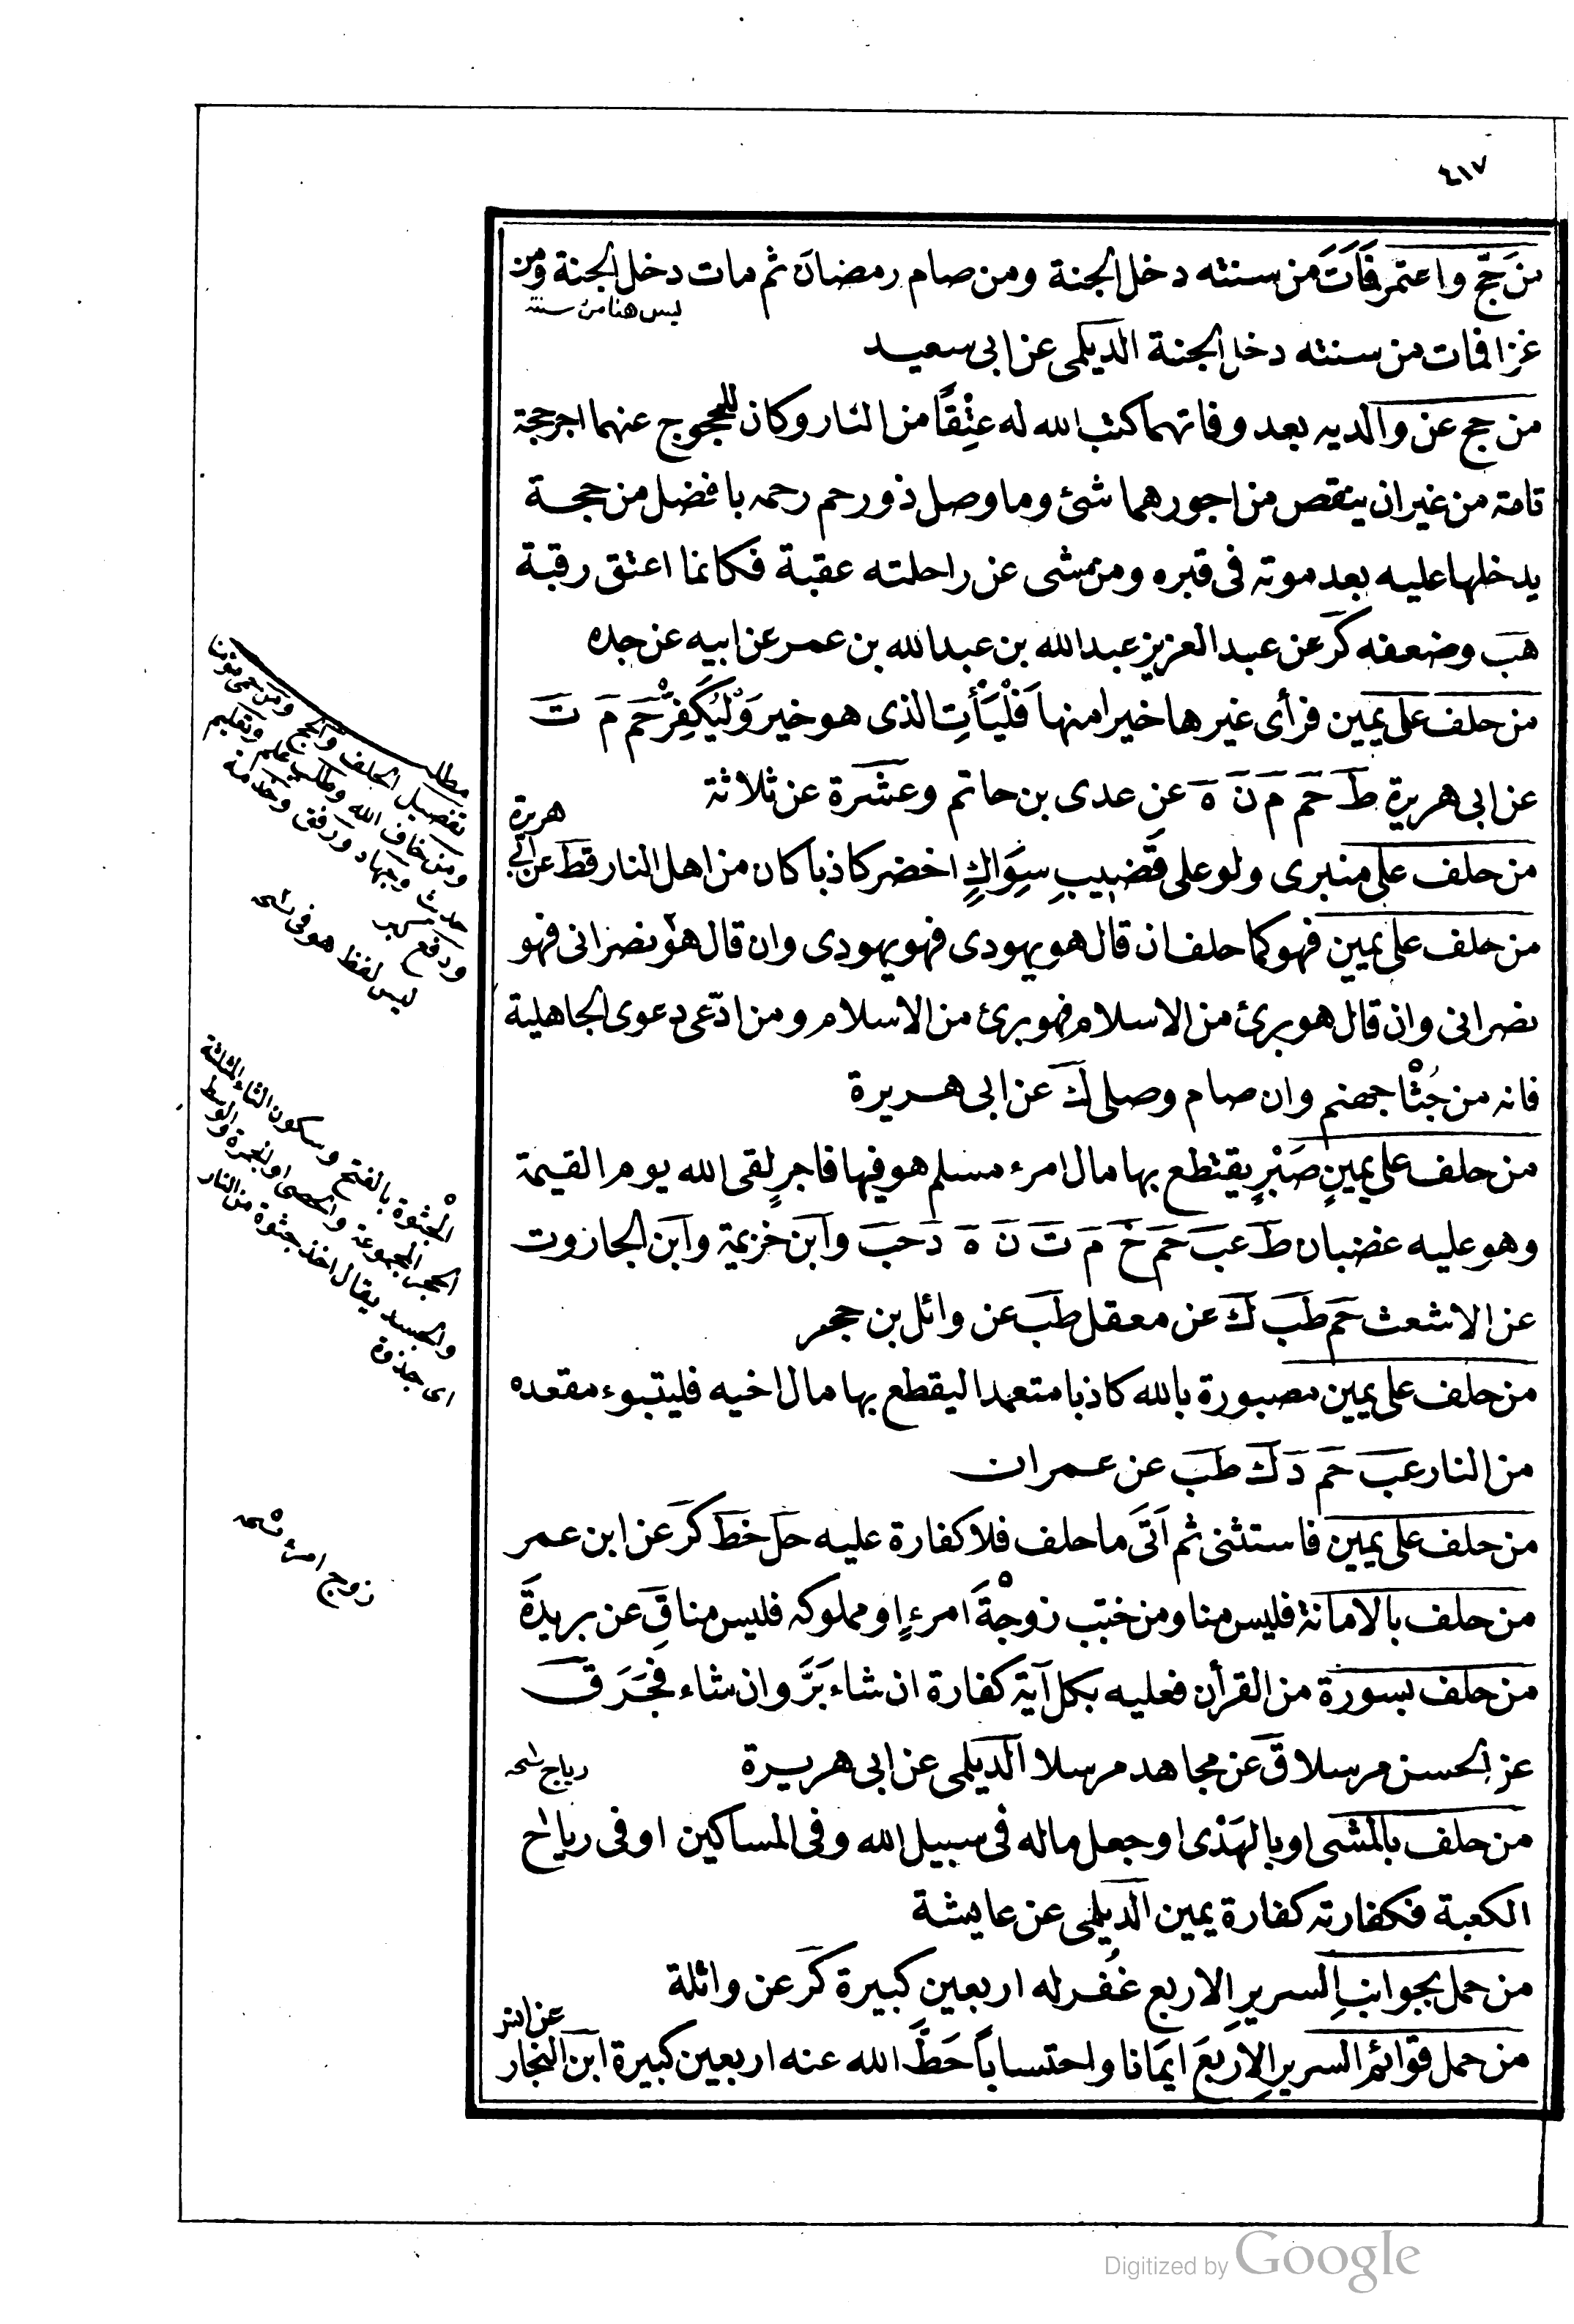 ٤١٧
من حَجَّ واعتمر فَمَاتَ من سنته دخل الجنة ومن صام رمضان ثم مات دخل الجنة ومن
ليس هنا من سنته
غزا فمات من سنته دخل الجنة الديلمى عن ابى سعيد
من حج عن والديه بعد وفاتهما كتب الله له عِتْقًا من النار وكان للمحجوج عنهما اجر حجة
تامة من غير ان ينقص من اجورهما شئ وما وصل ذو رحم رحمه بافضل من حجة
يدخلها عليه بعد موته فى قبره ومن مشى عن راحلته عقبة فكانما اعتق رقبة
هب وضعفه كر عن عبد العزيز عبدالله بن عبدالله بن عمر عن ابيه عن جده
من حلف على يمين فرأى غيرها خيرا منها فَلْيَأْتِ الذى هو خير وَلْيُكَفِّرْ حم م ت
عن ابى هريرة ط حم م ن ه عن عدى بن حاتم وعشرة عن ثلاثة
من حلف على منبرى ولو على قَضِيبِ سِوَاكٍ اخضر كاذبا كان من اهل النار قط عن ابى
هريرة
من حلف على يمين فهو كما حلف ان قال هو يهودى فهو يهودى وان قال هو نصرانى فهو
نصرانى وان قال هو برئ من الاسلام فهو برئ من الاسلام ومن ادّعى دعوى الجاهلية
فانه من جُثَا جهنم وان صام وصلى ك عن ابى هريرة
من حلف على يمينِ صَبْرٍ يقتطع بها مال امرء مسلم هو فيها فاجر لقى الله يوم القيمة
وهو عليه غضبان ط عب حم خ م ت ن ه د حب وابن خزيمة وابن الجارود
عن الاشعث حم طب ك عن معقل طب عن وائل بن حجر
من حلف على يمين مصبورة بالله كاذبا متعمدا ليقطع بها مال اخيه فليتبوء مقعده
من النار عب حم د ك طب عن عمران
من حلف على يمين فاستثنى ثم اَتَى ما حلف فلا كفارة عليه حل خط كر عن ابن عمر
من حلف بالامانة فليس منا ومن خبّب زوجْةَ امرءٍ او مملوكه فليس منا ق عن بريدة
من حلف بسورة من القرأن فعليه بكل آية كفارة ان شاء بَرَّ وان شاء فَجَرَ ق
عن الحسن مرسلا ق عن مجاهد مرسلا الديلمى عن ابى هريرة
رياج نسخه
من حلف بالمشى او بالهَدْى او جعل ماله فى سبيل الله وفى المساكين او فى رياح
الكعبة فكفارته كفارة يمين الديلمى عن عايشة
من حمل بجوانبِ السريرِ الاربع غُفر له اربعين كبيرة كر عن واثلة
من حمل قوائم السرير الاربعَ ايمانا واحتسابًا حَطَّ الله عنه اربعين كبيرة ابن النجار
عن انس
مطلب
تفصيل الحلف والحج ومن حمى مؤمن
ومن خاف الله وطلب علم وتعليم
حدث وجهاد ورفق وخدمة
ودفع
ليس لفظ هو فى نسخه
الْجثوة بالفتح وسكون الثاء المثلثة
الحجر المجموعة والحصى او الجمرة والوسط
والجسد يقال اخذ جثوة من النار
اى جذوة
زوج امرء نسخه
Digitized by Google